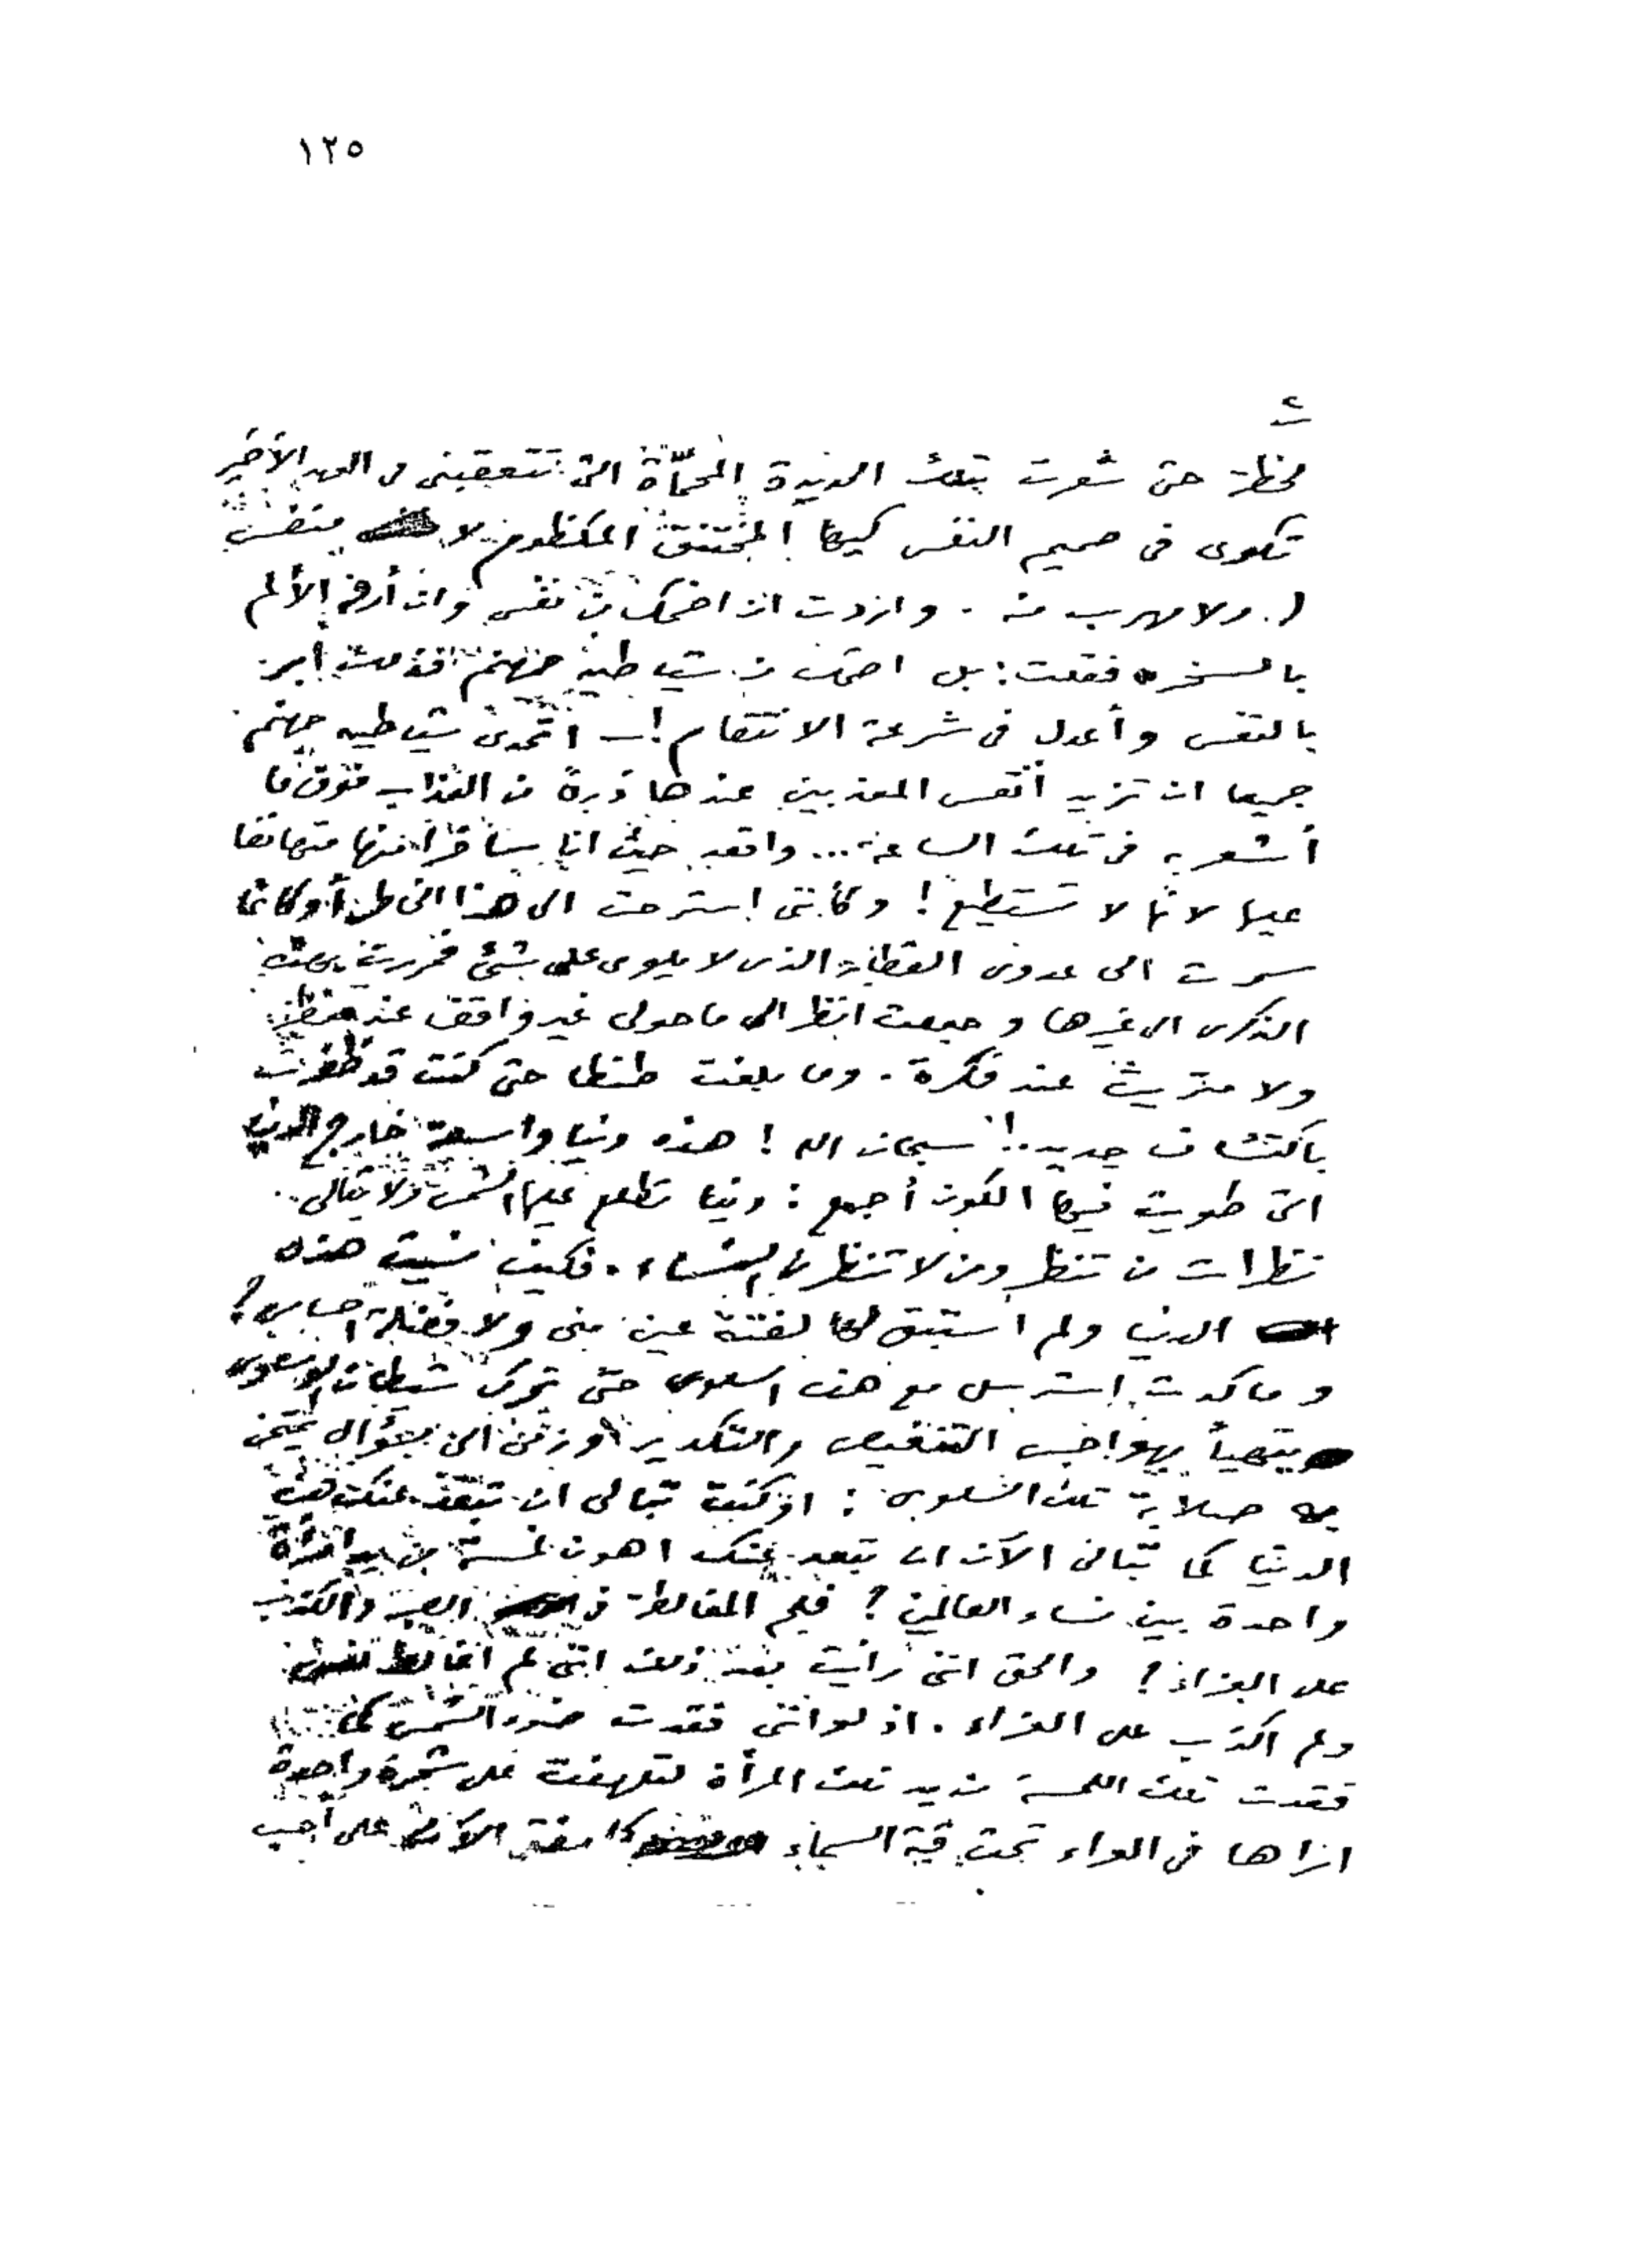 ١٢٥
لحظة حتى شعرت بتلك الحديدة المحمّاة التى تتعقبنى فى العهد الأخير
تكوى فى صميم النفس كيها المختنق المكظوم لا متنفس
له ولا مهرب منه . واردت ان اضحك من نفسى وان أرفه الألم
بالسخره فقلت : بل اضحك من شياطين جهنم فذلك ابر
بالنفس وأعدل فى شرعة الانتقام ! ــ اتحدى شياطين جهنم
جميعا ان تزيد أنفس المعذبين عندها ذرة من العذاب فوق ما
أشعر به فى تلك الساعة ... واقعد حيث انا ساخرا منها متهانفا
عليها لانها لا تستطيع ! وكأننى استرحت الى هذا الخاطر أو كأنما
سرت الى عدوى القطار الذى لا يلوى على شئ فمررت بهذه
الذكرى الى غيرها وجعلت انظر الى ما حولى غير واقف عند منظر
ولا متريث عند فكرة . وما بلغت طنطا حتى كنت قد ظفرت
باكتشاف جديد ! سبحان الله ! هذه دنيا واسعة خارج الدنيا
التى طويت فيها الكون أجمع : دنيا تطلع عليها الشمس ولا تبالى
نظرات من تنظر ومن لا تنظر من النساء . فكيف نسيت هذه
الدنيا ولم استبق لها لفتة عين منى ولا فضلة احساس ؟
وما كدت استرسل مع هذه السلوى حتى تحرك شيطان
يتهيأ بواجب التنغيص والتكدير وزف الى بسؤال يمتحن
به صلابة تلك السلوى : اوكنت تبالى ان تبعد عنك هذه
الدنيا كما تبالى الآن ان تبعد عنك اهون لمسة من يد امرأة
واحدة بين نساء العالمين ؟ فلم المغالطة فى الصبر والكذب
على العزاء ؟ والحق اننى رأيت بعد ذلك اننى لم اغالط نفسى
ولم اكذب على العزاء . اذ لو اننى فقدت ضوء الشمس كما
فقدت تلك اللمسة من يد تلك المرأة لتلهفت على شجرة واحدة
اراها فى العراء تحت قبة السماء كما الآن على أحب